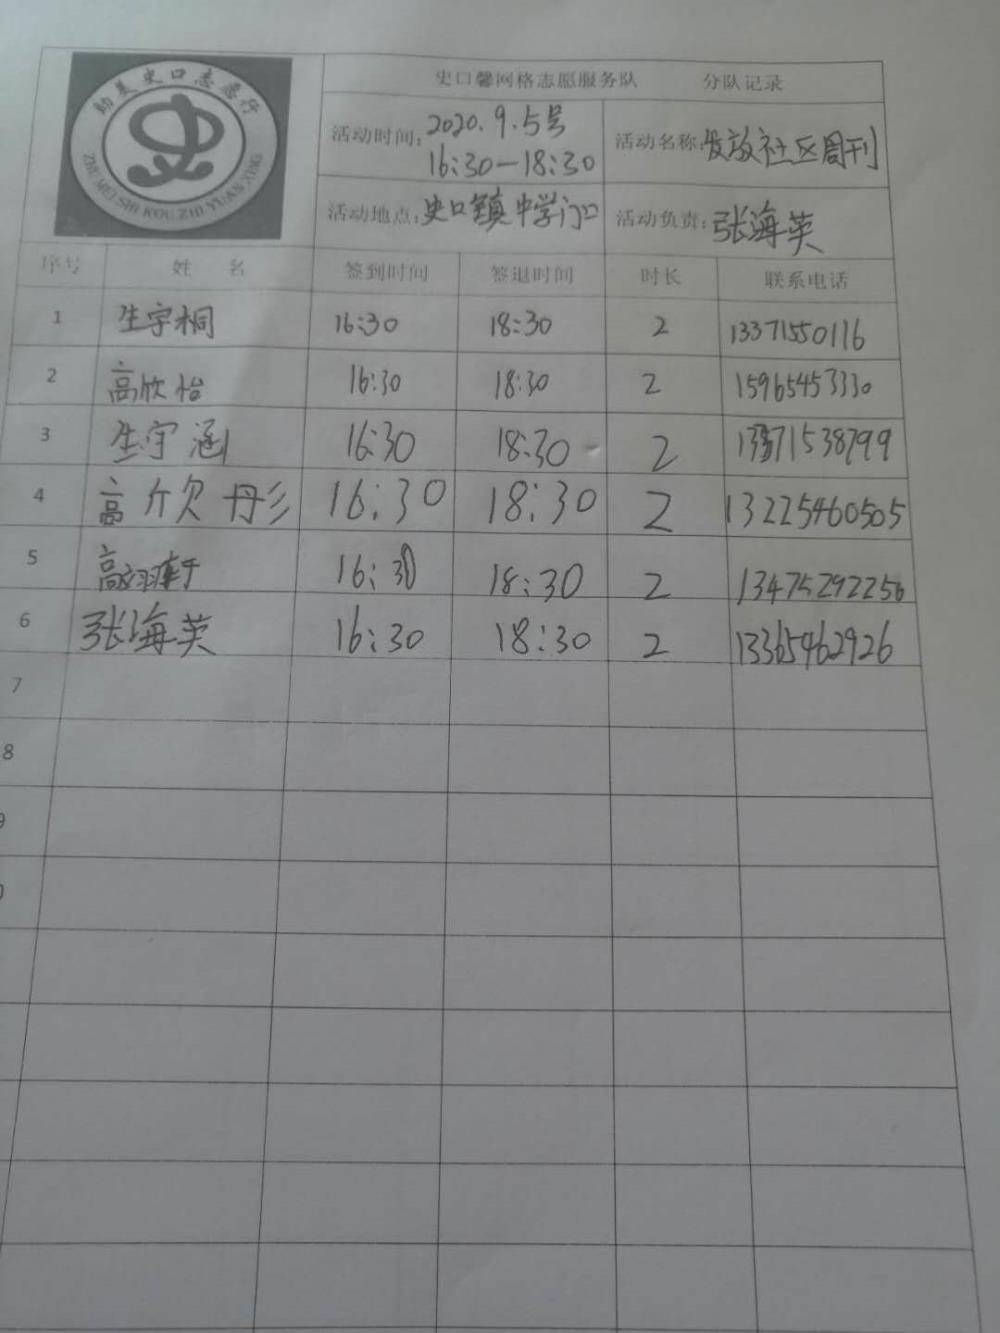 助美史口志愿行
ZHU MEI SHI KOU ZHI YUAN XING
史口馨网格志愿服务队 分队记录
活动时间: 2020.9.5号
16:30—18:30
活动名称: 发放社区周刊
活动地点: 史口镇中学门口
活动负责: 张海英
序号 姓 名 签到时间 签退时间 时长 联系电话
1 生宇桐 16:30 18:30 2 13371550116
2 高欣怡 16:30 18:30 2 15965453330
3 生宇涵 16:30 18:30 2 13371538799
4 高欣彤 16:30 18:30 2 13225460505
5 高翊轩 16:30 18:30 2 13475292256
6 张海英 16:30 18:30 2 13365462926
7
8
9